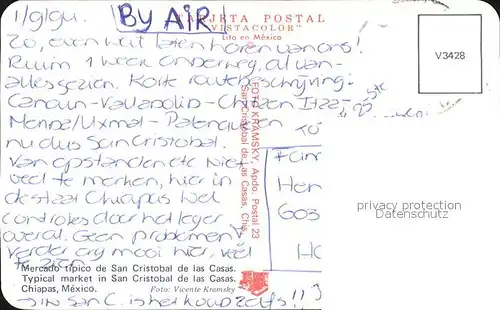 1/9/94.
BY AIR
TARJETA POSTAL
"VISTACOLOR"
Lito en México
V3428
Zo, even wat laten horen van ons!
Ruim 1 week onderweg, al van
alles gezien. Korte routebeschrijving:
Cancun-Valladolid-Chitzen Itza-
Merida/Uxmal-Palenque en
nu dus San Cristobal.
Van opstanden etc niet
veel te merken, hier in
de staat Chiapas wel
controles door het leger
overal. Geen problemen
verder erg mooi hier, veel
te zien.
FOTO KRAMSKY, Apdo. Postal 23
San Cristobal de Las Casas, Chis.
Fam
Her
603
privacy protection
Datenschutz
Mercado típico de San Cristobal de las Casas.
Typical market in San Cristobal de las Casas.
Chiapas, México. Foto: Vicente Kramsky
in San C. is het koud zelfs!!